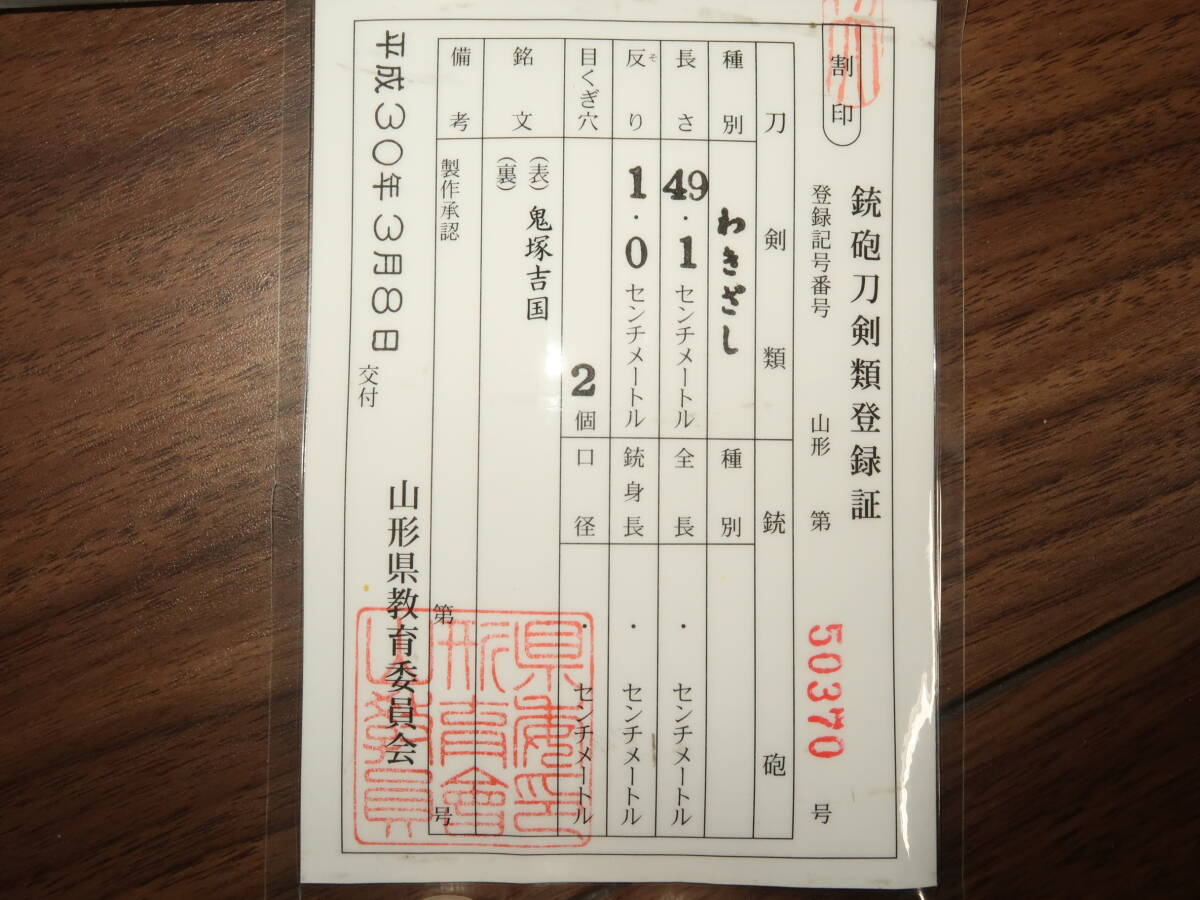 割印
銃砲刀剣類登録証
登録記号番号 山形 第 50370 号
刀剣類 銃砲
種別 わきざし 種別
長さ 49.1センチメートル 全長 ・ センチメートル
反り 1.0センチメートル 銃身長 ・ センチメートル
そ
目くぎ穴 2個 口径 ・ センチメートル
銘文 (表) 鬼塚吉国
(裏)
備考 製作承認 第 号
平成30年3月8日 交付
山形県教育委員会